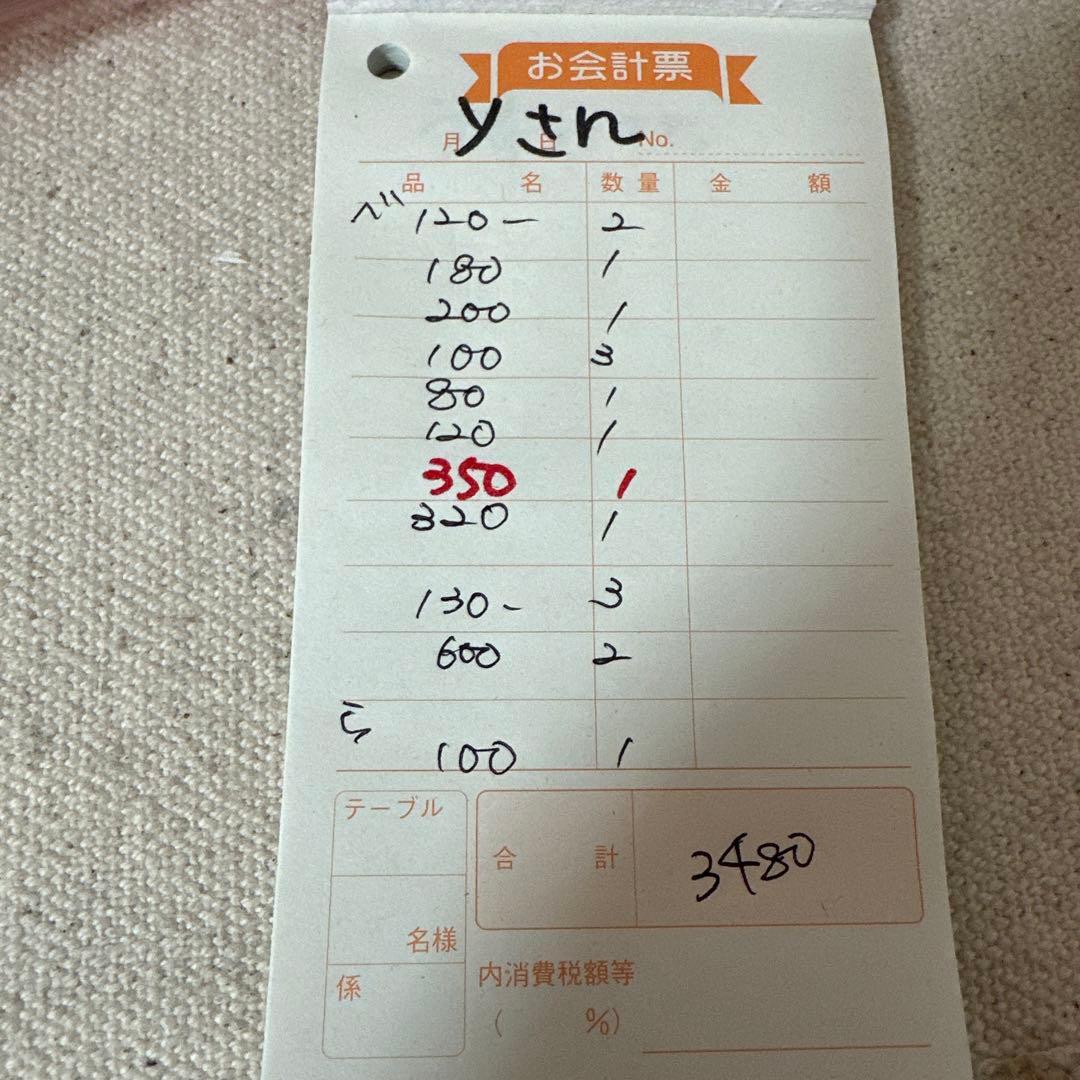 お会計票
yさん
月 日 No.
品 名 数 量 金 額
べ 120ー 2
180 1
200 1
100 3
80 1
120 1
350 1
320 1
130- 3
600 2
100 1
テーブル
合 計 3480
名様
係
内消費税額等
( %)